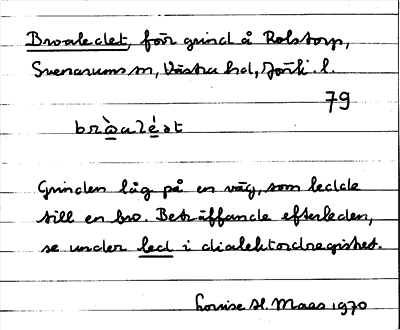 Broaledet, förr grind å Rolstorp,
Svenarums sn, Västra hd, Jönk. l.
79
bròalést
Grinden låg på en väg, som ledde
till en bro. Beträffande efterleden,
se under led i dialektordregistret.
Louise H. Maas 1970